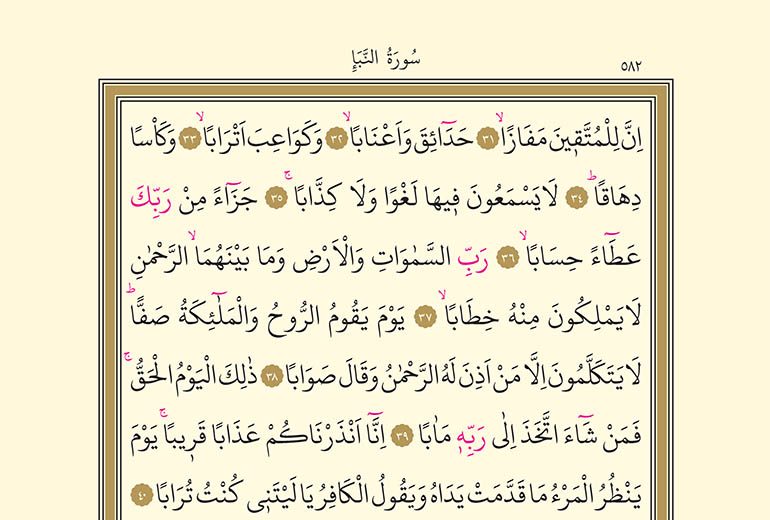 سُورَةُ النَّبَإِ ٥٨٢
اِنَّ لِلْمُتَّقٖينَ مَفَازًاۙ ﴿٣١﴾ حَدَٓائِقَ وَاَعْنَابًاۙ ﴿٣٢﴾ وَكَوَاعِبَ اَتْرَابًاۙ ﴿٣٣﴾ وَكَاْسًا
دِهَاقًاۜ ﴿٣٤﴾ لَا يَسْمَعُونَ فٖيهَا لَغْوًا وَلَا كِذَّابًاۚ ﴿٣٥﴾ جَزَٓاءً مِنْ رَبِّكَ
عَطَٓاءً حِسَابًاۙ ﴿٣٦﴾ رَبِّ السَّمٰوَاتِ وَالْاَرْضِ وَمَا بَيْنَهُمَاۙ الرَّحْمٰنِ
لَا يَمْلِكُونَ مِنْهُ خِطَابًاۙ ﴿٣٧﴾ يَوْمَ يَقُومُ الرُّوحُ وَالْمَلٰٓئِكَةُ صَفًّاۜ
لَا يَتَكَلَّمُونَ اِلَّا مَنْ اَذِنَ لَهُ الرَّحْمٰنُ وَقَالَ صَوَابًا ﴿٣٨﴾ ذٰلِكَ الْيَوْمُ الْحَقُّۚ
فَمَنْ شَٓاءَ اتَّخَذَ اِلٰى رَبِّهٖ مَاٰبًا ﴿٣٩﴾ اِنَّٓا اَنْذَرْنَاكُمْ عَذَابًا قَرٖيبًاۚ يَوْمَ
يَنْظُرُ الْمَرْءُ مَا قَدَّمَتْ يَدَاهُ وَيَقُولُ الْكَافِرُ يَا لَيْتَنٖى كُنْتُ تُرَابًا ﴿٤٠﴾